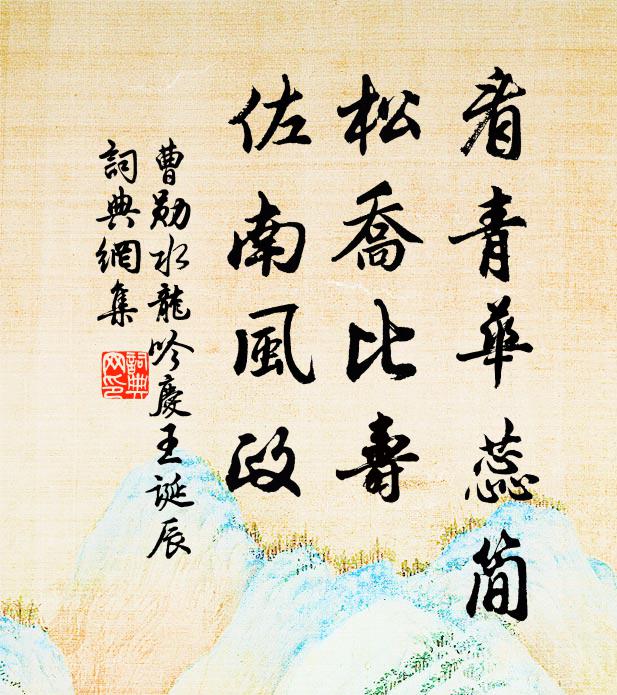 看青華蕊簡
松喬比壽
佐南風政
曹勛水龍吟慶王誕辰
詞典網集
詞典
网印